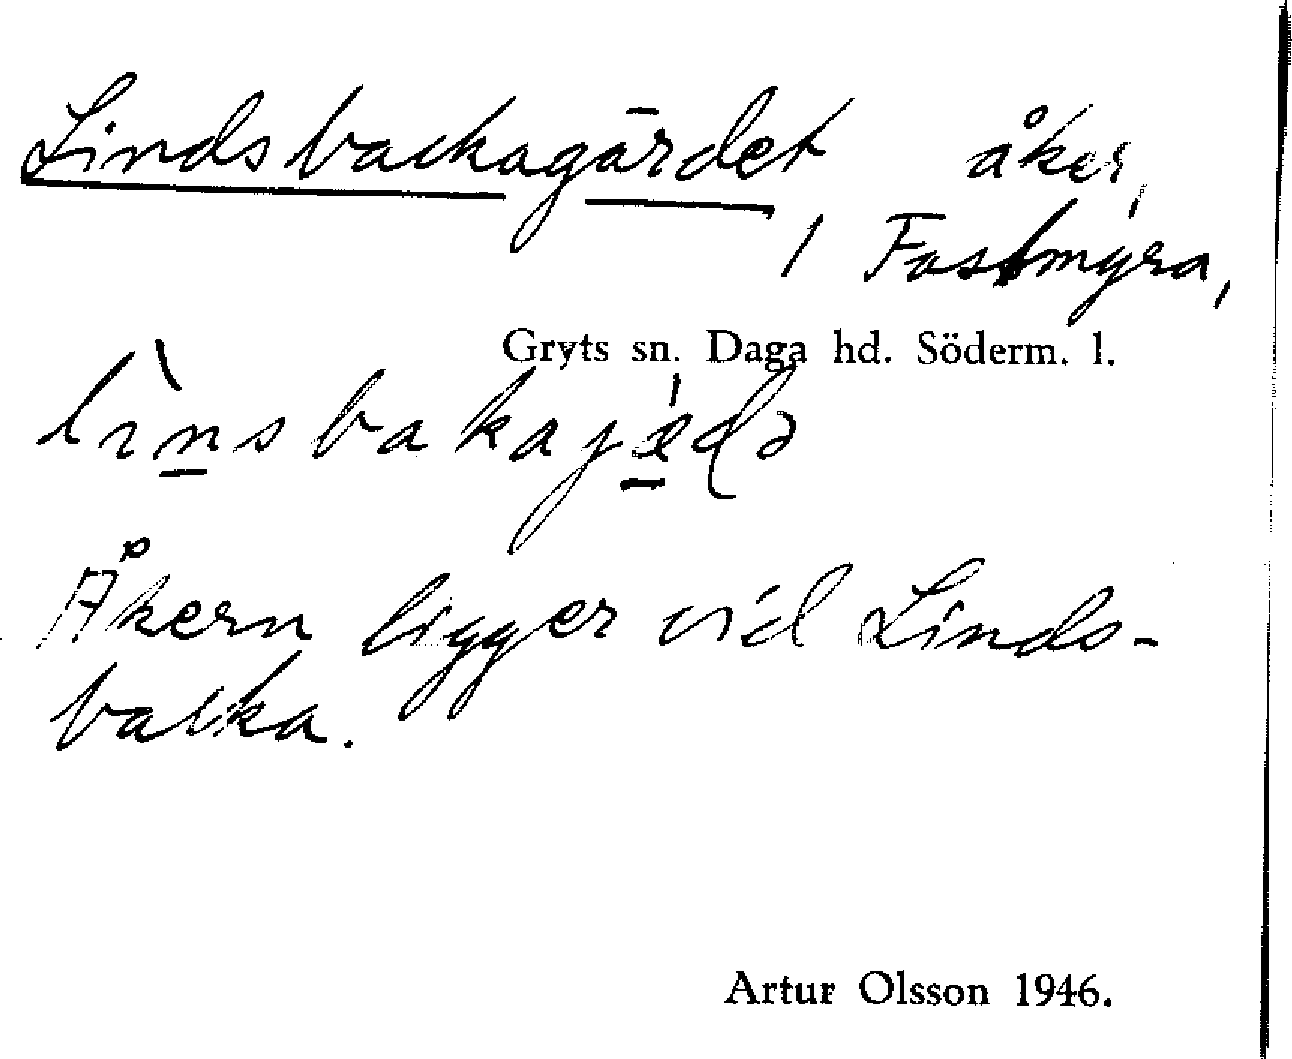 Lindsbackagärdet åker,
, Fastmyra,
Gryts sn. Daga hd. Söderm. l.
Åkern ligger vid Linds-
backa.
Artur Olsson 1946.